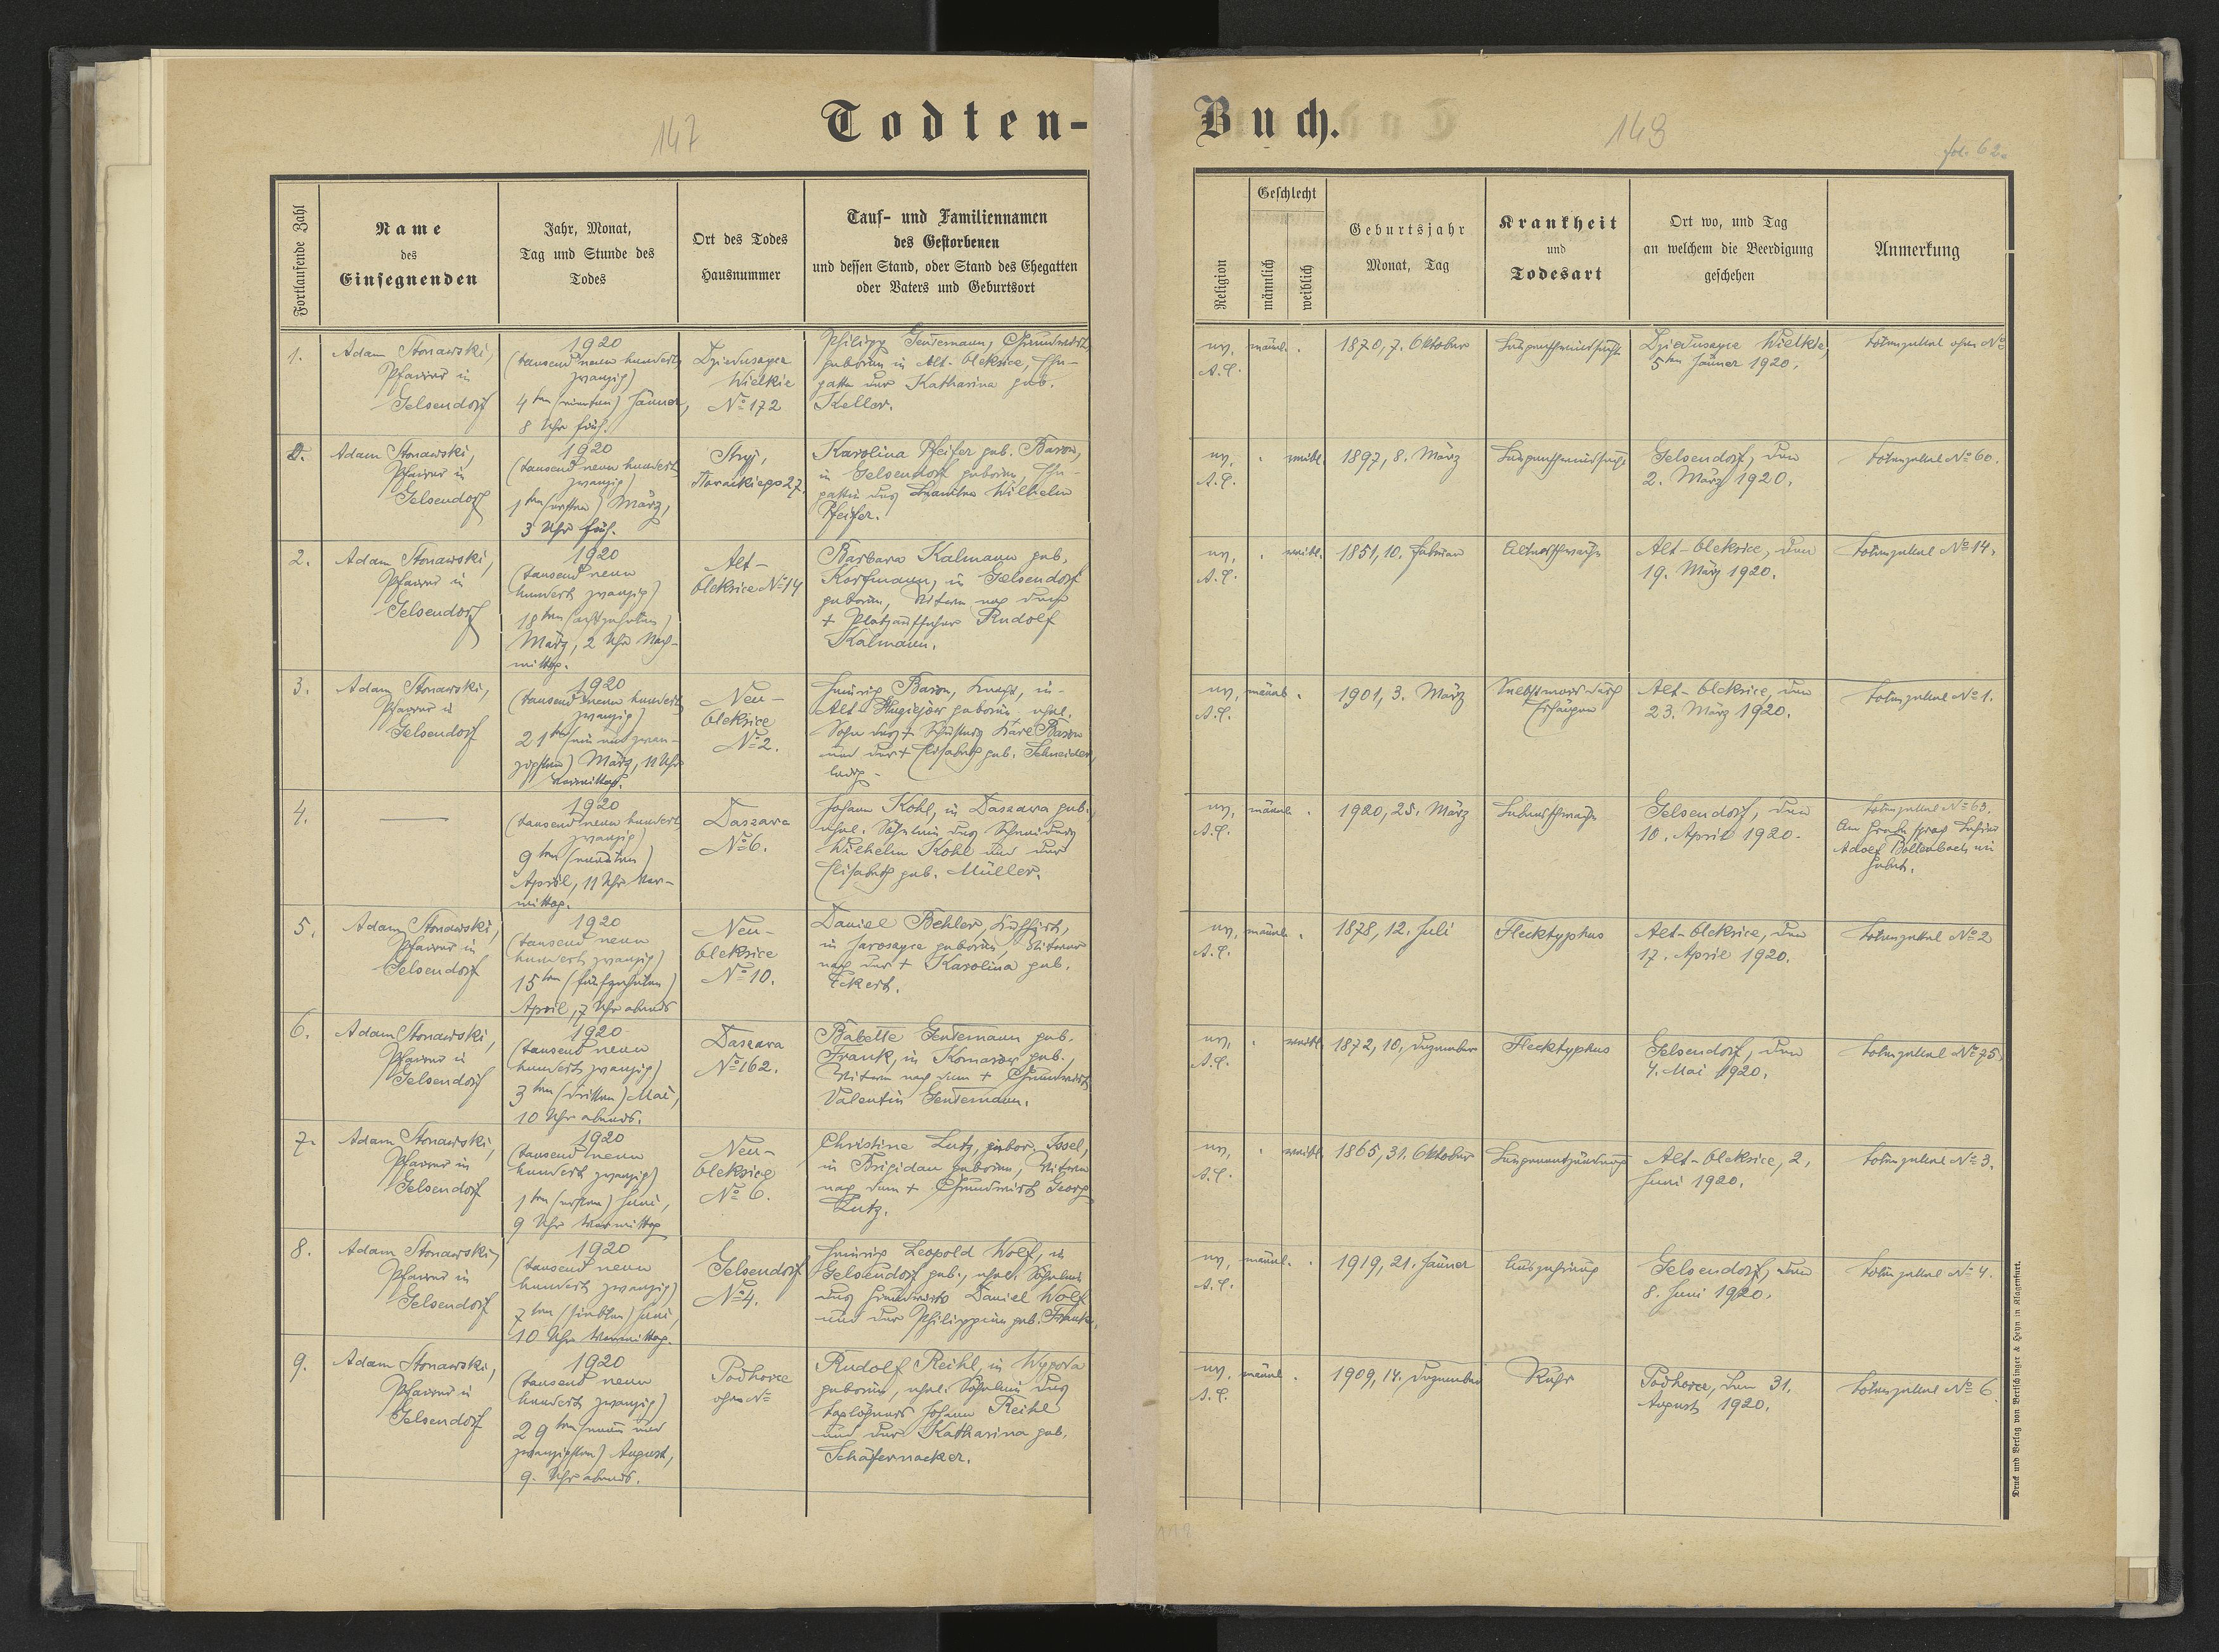 147
Todten-
Fortlaufende Zahl
Name
des
Einsegnenden
Jahr, Monat,
Tag und Stunde des
Todes
Ort des Todes
Hausnummer
Tauf- und Familiennamen
des Gestorbenen
und dessen Stand, oder Stand des Ehegatten
oder Vaters und Geburtsort
1.
Adam Stonawski,
Pfarrer in
Gelsendorf
1920
(tausend neun hundert
zwanzig)
4ten (vierten) Jänner,
8 Uhr früh.
Dzieduszyce
Wielkie
No 172
Philipp Gentemann, Grundwirth,
geboren in Alt-Oleksice, Ehe-
gatte der Katharina geb.
Keller.
Adam Stonawski,
Pfarrer in
Gelsendorf
1920
(tausend neun hundert
zwanzig)
1ten (ersten) März,
3 Uhr früh.
Stryj,
27.
Karolina Pfeifer geb. Baron,
in Gelsendorf geboren, Ehe-
gattin des Beamten Wilhelm
Pfeifer.
2.
Adam Stonawski,
Pfarrer in
Gelsendorf
1920
(tausend neun
hundert zwanzig)
18ten (achtzehnten)
März, 2 Uhr Nach-
mittag.
Alt-
Oleksice No 14
Barbara Kalmann geb.
Korfmann, in Gelsendorf
geboren, Witwe nach dem
+ Platzaufseher Rudolf
Kalmann.
3.
Adam Stonawski,
Pfarrer in
Gelsendorf
1920
(tausend neun hundert
zwanzig)
21ten (ein und zwan-
zigsten) März, 11 Uhr
Vormittag.
Neu-
Oleksice
No 2.
Heinrich Baron, Knecht, in
Alt geboren, ehel.
Sohn des + Schusters Karl Baron
und der + Elisabeth geb. Schneider,
ledig.
4.
1920
(tausend neun hundert
zwanzig)
9ten (neunten)
April, 11 Uhr Vor-
mittag.
Daszawa
No 6.
Johann Kohl, in Daszawa geb.,
ehel. Söhnlein des Schneiders
Wilhelm Kohl und der
Elisabeth geb. Müller.
5.
Adam Stonawski,
Pfarrer in
Gelsendorf
1920
(tausend neun
hundert zwanzig)
15ten (fünfzehnten)
April, 7 Uhr abends
Neu-
Oleksice
No 10.
Daniel Behler, Kuhhirt,
in Jaroszyce geboren, Witwer
nach der + Karolina geb.
Eckert.
6.
Adam Stonawski,
Pfarrer in
Gelsendorf
1920
(tausend neun
hundert zwanzig)
3ten (dritten) Mai,
10 Uhr abends.
Daszawa
No 162.
Babette Gentemann geb.
Frank, in Komarow geb.,
Witwe nach dem + Grundwirth
Valentin Gentemann.
7.
Adam Stonawski,
Pfarrer in
Gelsendorf
1920
(tausend neun
hundert zwanzig)
1ten (ersten) Juni,
9 Uhr Vormittag
Neu-
Oleksice
No 6.
Christine Lutz, gebor. Issel,
in Brigidau geboren, Witwe
nach dem + Grundwirth Georg
Lutz.
8.
Adam Stonawski,
Pfarrer in
Gelsendorf
1920
(tausend neun
hundert zwanzig)
7ten (siebten) Juni,
10 Uhr Vormittag.
Gelsendorf
No 4.
Heinrich Leopold Wolf, in
Gelsendorf geb., ehel. Söhnlein
des Grundwirts Daniel Wolf
und der Philippine geb. Frank.
9.
Adam Stonawski,
Pfarrer in
Gelsendorf
1920
(tausend neun
hundert zwanzig)
29ten (neun und
zwanzigsten) August,
9. Uhr abends.
Podhorce
ohne No
Rudolf Reihl, in Wypora
geboren, ehel. Söhnlein des
Taglöhners Johann Reihl
und der Katharina geb.
Schäfernacker.
Buch.
148
fol. 62.
Religion
Geschlecht
männlich
weiblich
Geburtsjahr
Monat, Tag
Krankheit
und
Todesart
Ort wo, und Tag
an welchem die Beerdigung
geschehen
Anmerkung
ev.
A.C.
männl.
1870, 7. Oktober
Lungenschwindsucht
Dzieduszyce Wielkie,
5ten Jänner 1920.
Totenzettel ohne No
ev.
A.C.
weibl.
1897, 8. März
Lungenschwindsucht
Gelsendorf, den
2. März 1920.
Totenzettel No 60.
ev.
A.C.
weibl.
1851, 10. Februar
Altersschwäche
Alt-Oleksice, den
19. März 1920.
Totenzettel No 14.
ev.
A.C.
männl.
1901, 3. März
Selbstmord durch
Erhängen
Alt-Oleksice, den
23. März 1920.
Totenzettel No 1.
ev.
A.C.
männl.
1920, 25. März
Lebensschwäche
Gelsendorf, den
10. April 1920.
Totenzettel No 63.
Am Grabe sprach Lehrer
Adolf Bollenbach ein
Gebet.
ev.
A.C.
männl.
1878, 12. Juli
Flecktyphus
Alt-Oleksice, den
17. April 1920.
Totenzettel No 2
ev.
A.C.
weibl.
1872, 10. Dezember
Flecktyphus
Gelsendorf, den
4. Mai 1920.
Totenzettel No 75.
ev.
A.C.
weibl.
1865, 31. Oktober
Lungenentzündung
Alt-Oleksice, 2.
Juni 1920.
Totenzettel No 3.
ev.
A.C.
männl.
1919, 21. Jänner
Auszehrung
Gelsendorf, den
8. Juni 1920.
Totenzettel No 4.
ev.
A.C.
männl.
1909, 14. Dezember
Ruhr
Podhorce, den 31.
August 1920.
Totenzettel No 6
Druck und Verlag von Bertschinger & Heyn in Klagenfurt.